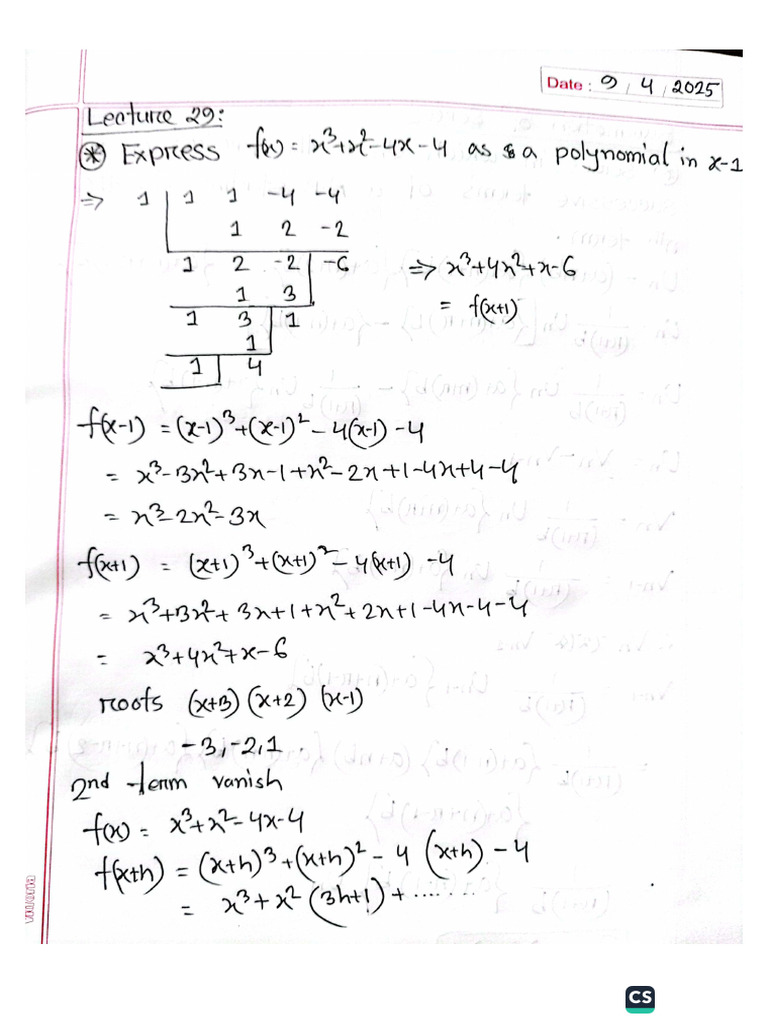 Date : 9 / 4 / 2025
Lecture 29:
* Express f(x) = x³+x²-4x-4 as a polynomial in x-1
⇒ 1 | 1 1 -4 -4
1 2 -2
1 2 -2 | -6 ⇒ x³+4x²+x-6
1 3 = f(x+1)
1 3 | 1
1
1 | 4
f(x-1) = (x-1)³+(x-1)² - 4(x-1) - 4
= x³-3x²+3x-1+x²-2x+1-4x+4-4
= x³-2x²-3x
f(x+1) = (x+1)³+(x+1)² - 4(x+1) - 4
= x³+3x²+3x+1+x²+2x+1-4x-4-4
= x³+4x²+x-6
roots (x+3) (x+2) (x-1)
-3, -2, 1
2nd term vanish
f(x) = x³+x²-4x-4
f(x+h) = (x+h)³+(x+h)² - 4 (x+h) - 4
= x³+x² (3h+1) + .......
CS